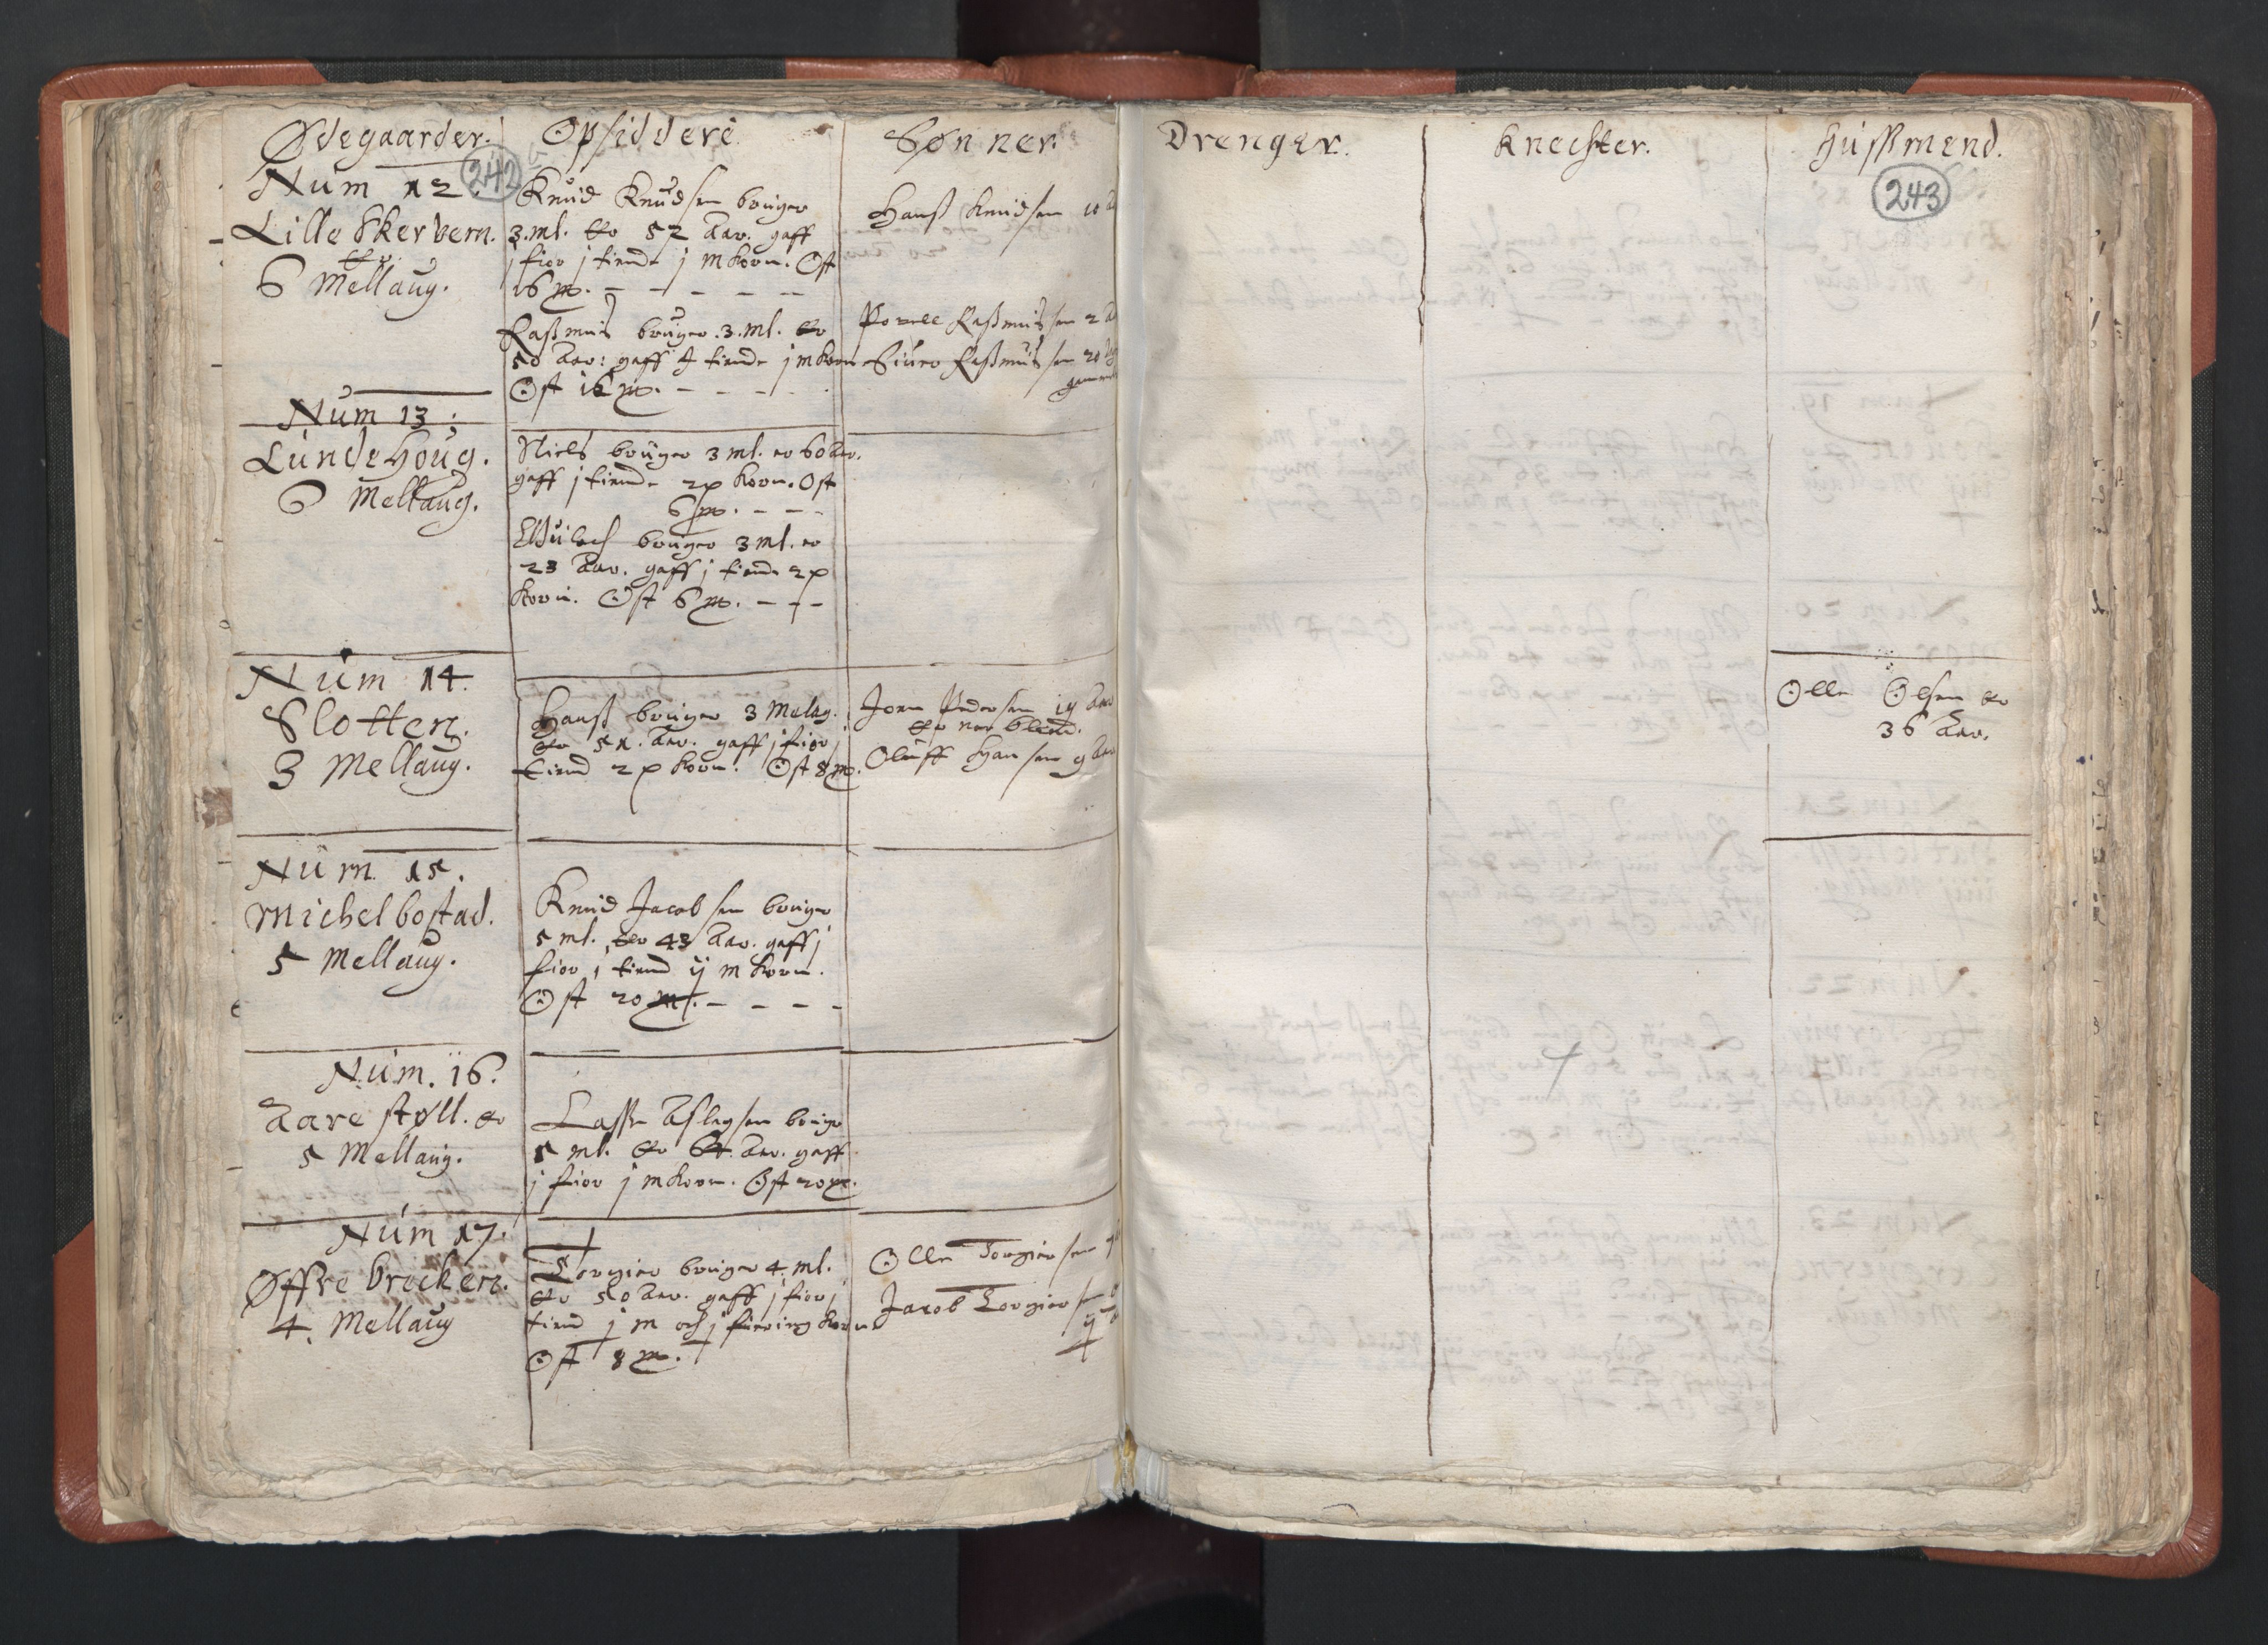 Ødegaarder.
Opsiddere
Sønner.
Num 12.
242
Lille Skervem.
er
6 Mellaug.
Knud Knudsen bruger
3. ml. er 52 Aar. gaff
j fior j tiende j m korn. Ost
16 m. - - - - -
Rasmus bruger. 3. ml. er
50 Aar: gaff j tiende j m korn
Ost 16 m. - - - -
Hanß Knudsen 10
Povell Raßmussen 2
Siuer Raßmussen 20
Num 13.
Lundehoug.
6 Mellaug.
Niels bruger 3 ml. er 60 Aar.
gaff j tiende 2 p korn. Ost
6 m. - - -
bruger 3 ml. er
23 Aar. gaff j tiende 2 p
korn. Ost 6 m. - - -
Num 14.
Slotten.
3 Mellaug.
Hanß bruger 3 Melag.
er 51. Aar. gaff j fior j
tiend 2 p korn. Ost 8 m.
Joen Pedersen 19 Aar
er blind.
Oluff Hansen 9 Aar
Num 15.
Michelbostad.
5 Mellaug.
Knud Jacobsen bruger
5 ml. er 43 Aar. gaff j
fior j tiend ij m korn.
Ost 20 m. - - - -
Num. 16.
Aarestøll. er
5 Mellaug.
Lasse Aslagsen bruger
5 ml. er 64. Aar. gaff
j fior j m korn. Ost 20 m.
Num 17.
Øffre brecken.
4. Mellaug
Torgier bruger 4. ml.
er 50 Aar. gaff j fior j
tiend j m och j korn
Ost 8 m.
Olle Torgiersen
Jacob Torgiersen
Drenger.
Knechter.
Hussmend.
243
Olle Olsen er
36 Aar.